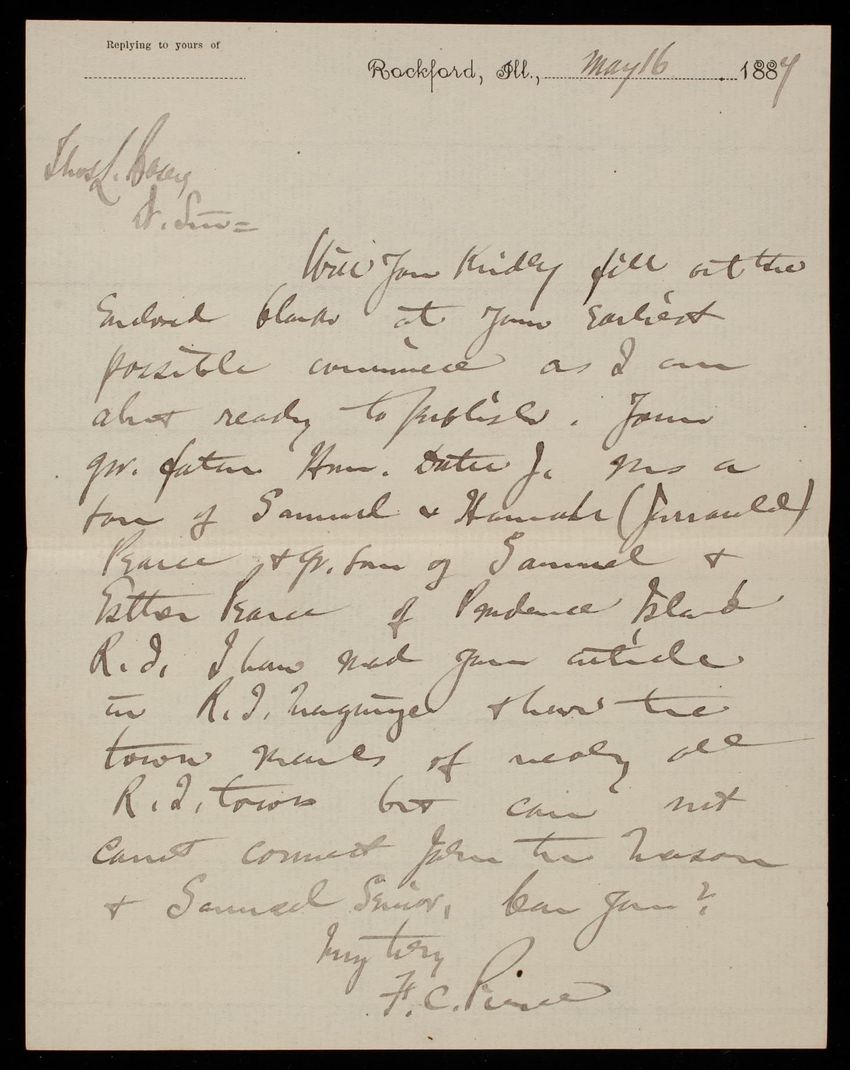 Replying to yours of
Rockford, Ill., May 16 1887
Thos L. Casey,
D. Sir =
Will You Kindly fill out the
Enclosed blank at Your Earliest
possible convenience as I am
about ready to publish. Your
gr. father Hon. Dutee J. was a
son of Samuel & Hannah (Jerrauld)
Pearce & gr. son of Samuel &
Esther Pearce of Prudence Island
R. I. I have read your article
in R. I. Magazine & have the
town records of nearly all
R. I. towns but can not
connect John the Mason
& Samuel Senior. Can You?
Truly
F. C. Pierce